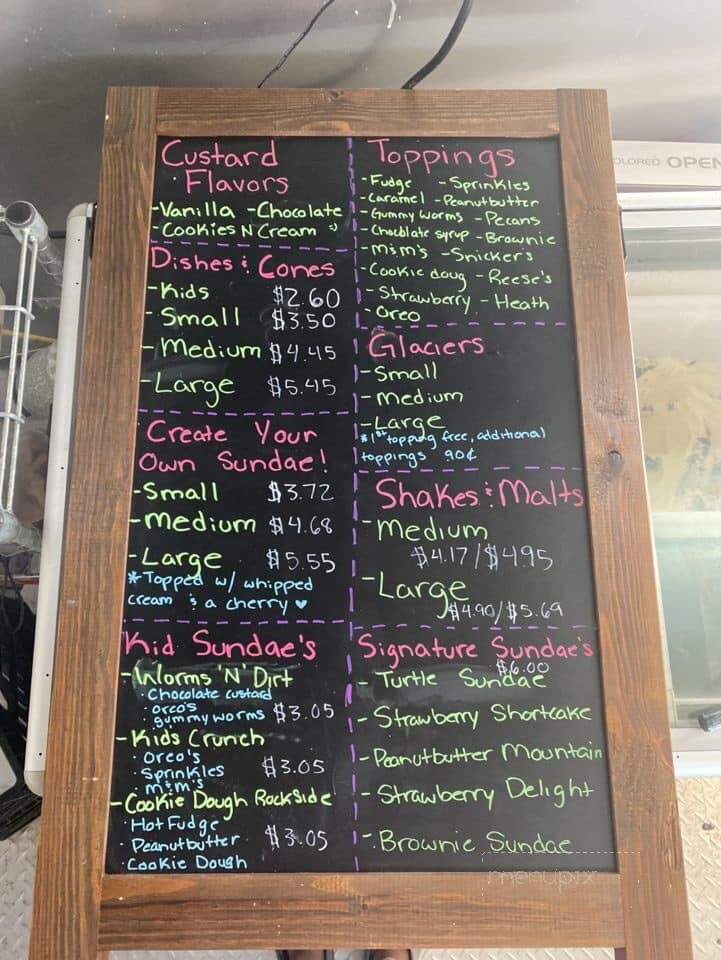 Custard
Flavors
-Vanilla -Chocolate
-Cookies N Cream :)
Dishes & Cones
-Kids $2.60
-Small $3.50
-Medium $4.45
-Large $5.45
Create Your
Own Sundae!
-Small $3.72
-medium $4.68
-Large $5.55
*Topped w/ whipped
cream & a cherry ♥
Kid Sundae's
-Worms 'N' Dirt
·Chocolate custard
·oreo's
·gummy worms $3.05
-Kids Crunch
·Oreo's
·Sprinkles $3.05
m&m's
-Cookie Dough Rockside
·Hot Fudge
·Peanutbutter $3.05
·Cookie Dough
Toppings
-Fudge -Sprinkles
-Caramel -Peanutbutter
-Gummy worms -Pecans
-Chocolate syrup -Brownie
-m&m's -Snicker's
-Cookie doug -Reese's
-Strawberry -Heath
-Oreo
Glaciers
-Small
-medium
-Large
*1st topping free, additional
toppings 90¢
Shakes & Malts
-Medium
$4.17/$4.95
-Large
$4.90/$5.69
Signature Sundae's
$6.00
-Turtle Sundae
-Strawberry Shortcake
-Peanutbutter Mountain
-Strawberry Delight
-Brownie Sundae
OLORED OPEN
menupix